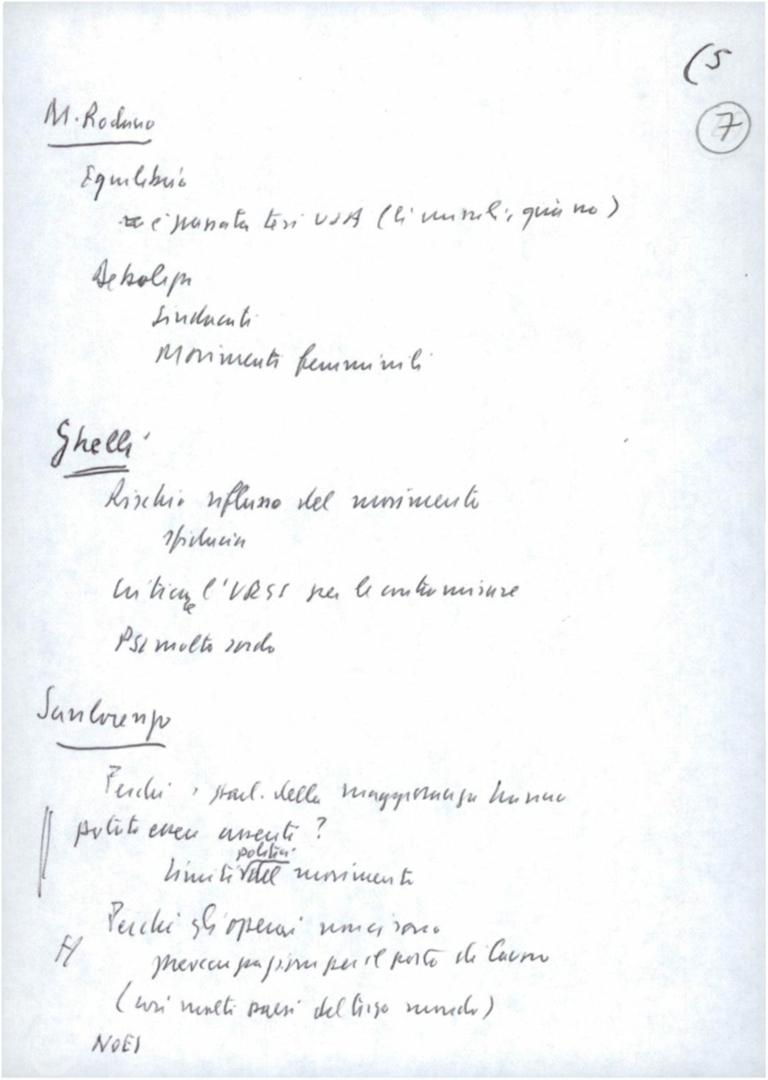 (5
7
M. Rodano
Equilibrio
è passata tesi USA (lì missili, qui no)
Debolezze
Sindacati
Movimenti femminili
Ghelli
Rischio riflusso del movimento
sfiducia
Criticare l'URSS per le contromisure
PSI molto sordo
Sanlorenzo
Perché i parl. della maggioranza hanno
potuto essere assenti?
Limiti politici del movimento
Perché gli operai non ci sono
preoccupazioni per il posto di lavoro
(così molti paesi del terzo mondo)
NOEI